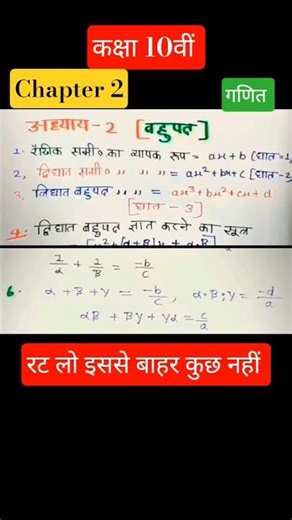 कक्षा 10वीं
Chapter 2
गणित
अध्याय-2 [बहुपद]
1. रैखिक समी० का व्यापक रूप = ax + b [घात=1,
2, द्विघात समी० ,, ,, ,, = ax² + bx + c [घात-2,
3, त्रिघात बहुपद ,, ,, ,, = ax³ + bx² + cx + d
[घात - 3]
4. द्विघात बहुपद ज्ञात करने का सूत्र
1/α + 1/β = -b/c
6. α + β + γ = -b/c, α·β·γ = -d/a
αβ + βγ + γα = c/a
रट लो इससे बाहर कुछ नहीं